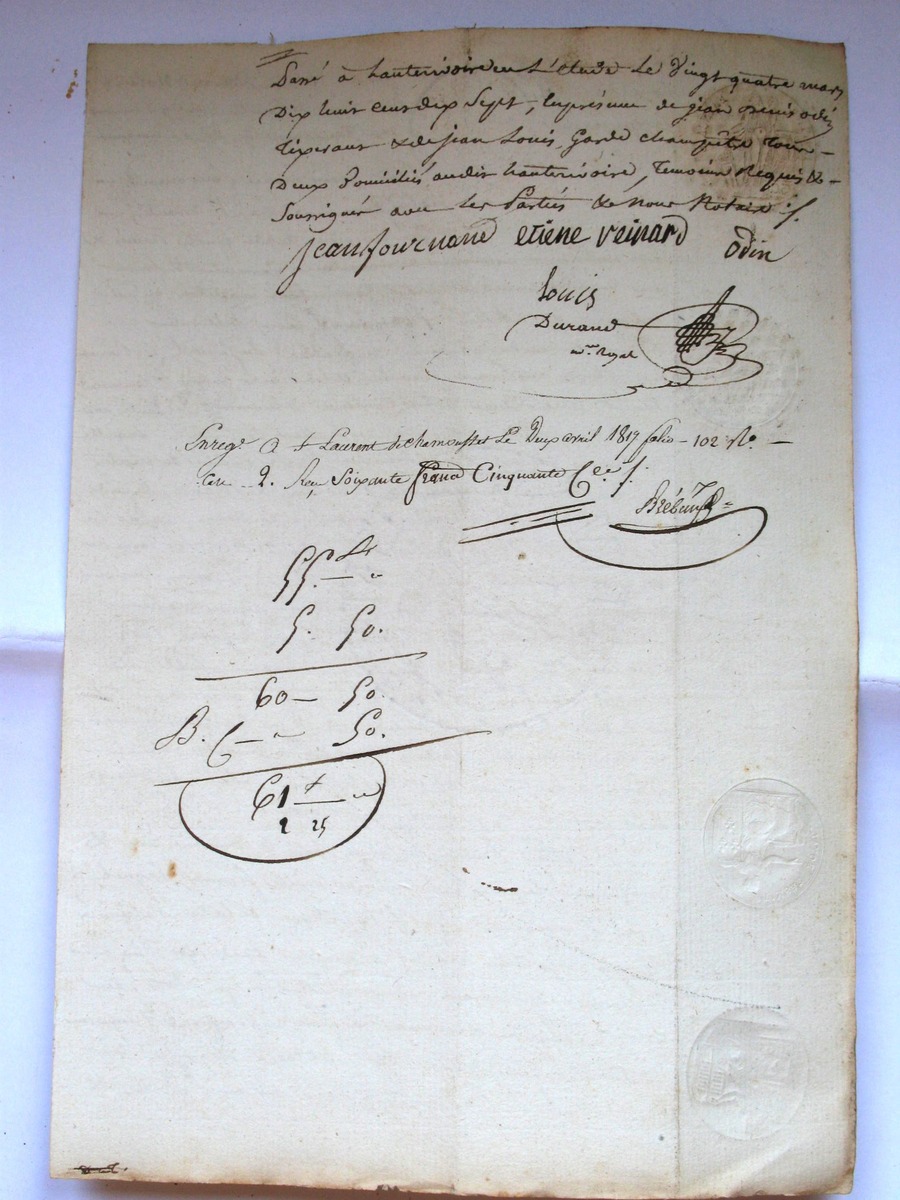 Passé à hauterivoire en L'étude Le Vingt quatre mars
Dix huit cent dix Sept, En présence de jean denis odin
Tixerant & de jean Louis Garde champêtre tous
Deux Domiciliés audit hauterivoire, Temoins Requis &
Soussignés avec les Parties & Nous Notaire
jean fournand etiene veinard odin
Louis
Durand
nre Royal
Enregé a St Laurent de chamousset Le Deux avril 1817 folio 102 Ro
Case 2. Reçu Soixante franc Cinquante Ces
55 —
5. 50.
60 — 50.
B. 50.
61
2 25